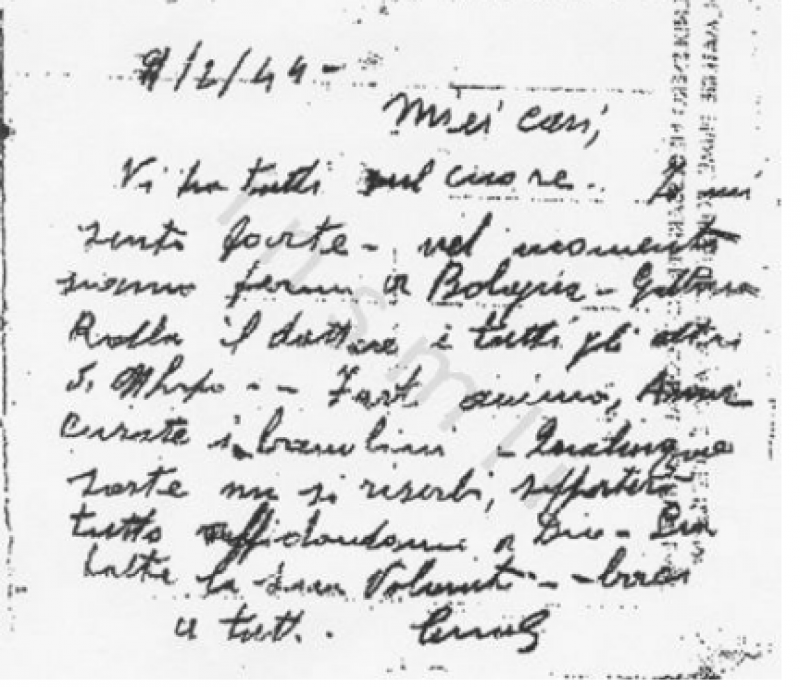 /2/44 -
Miei cari,
Vi ho tutti sul cuore. Io mi
sento forte - nel momento
siamo fermi a Bologna -
Rolla il dottore e tutti gli altri
animo,
curate i bambini - Qualunque
sorte mi si riserbi, sopporterò
tutto affidandomi a Dio - Sia
fatta la sua Volontà - - baci
a tutti.